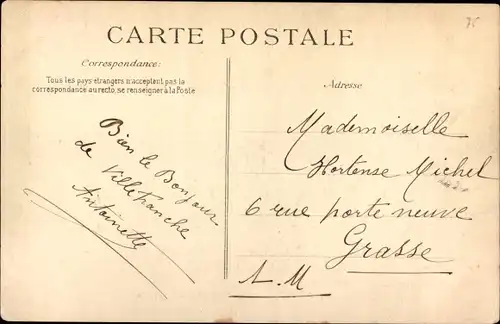 75
CARTE POSTALE
Correspondance:
Tous les pays étrangers n'acceptent pas la
correspondance au recto, se renseigner à la Poste
Bien le Bonjour
de Villefranche
Antoinette
Adresse
Mademoiselle
Hortense Michel
6 rue porte neuve
Grasse
A. M